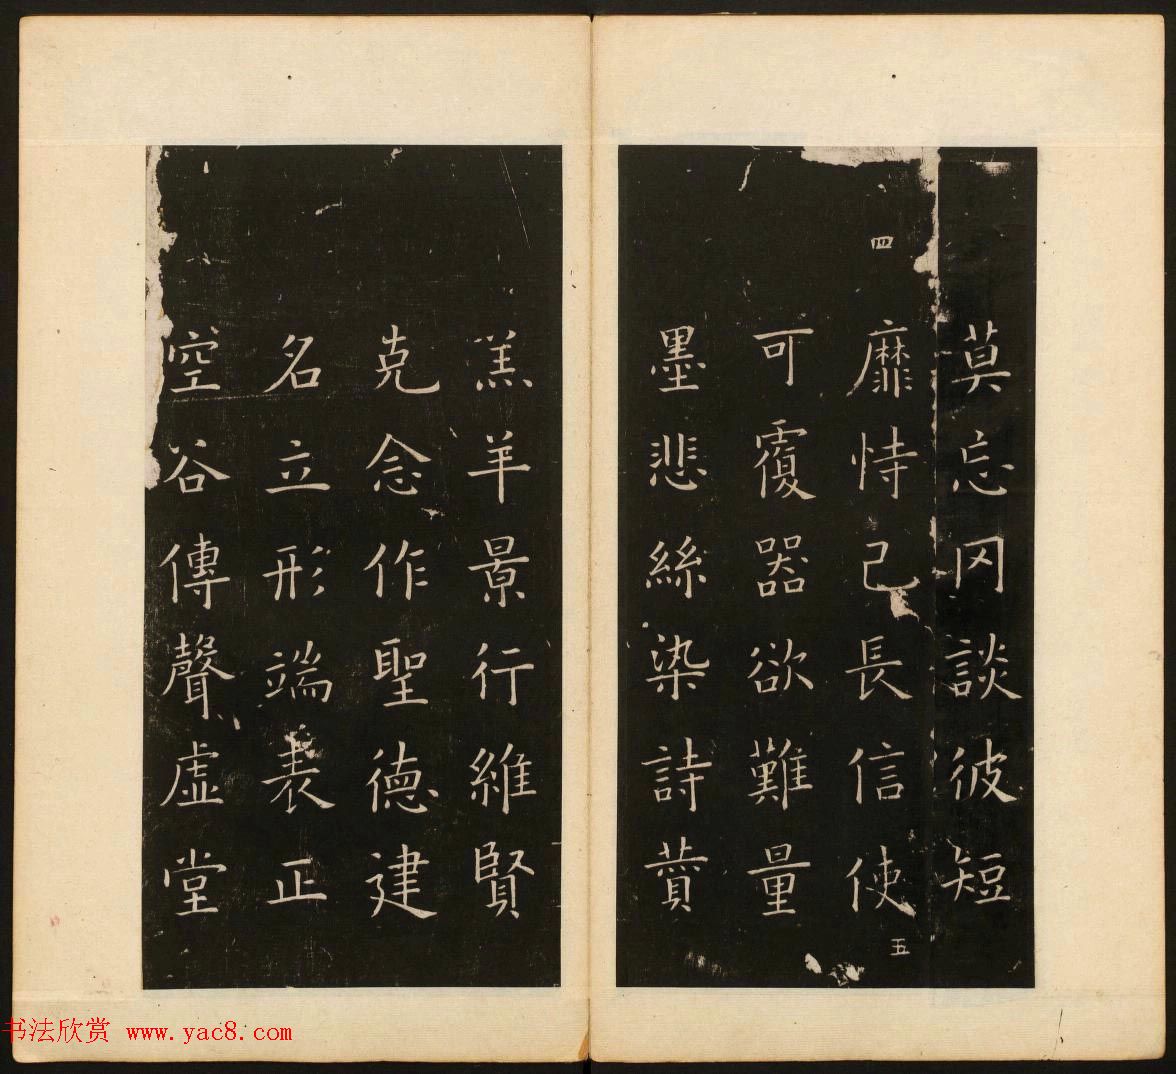 莫忘罔談彼短
四
靡恃己長信使
五
可覆器欲難量
墨悲絲染詩讚
羔羊景行維賢
克念作聖德建
名立形端表正
空谷傳聲虛堂
书法欣赏 www.yac8.com